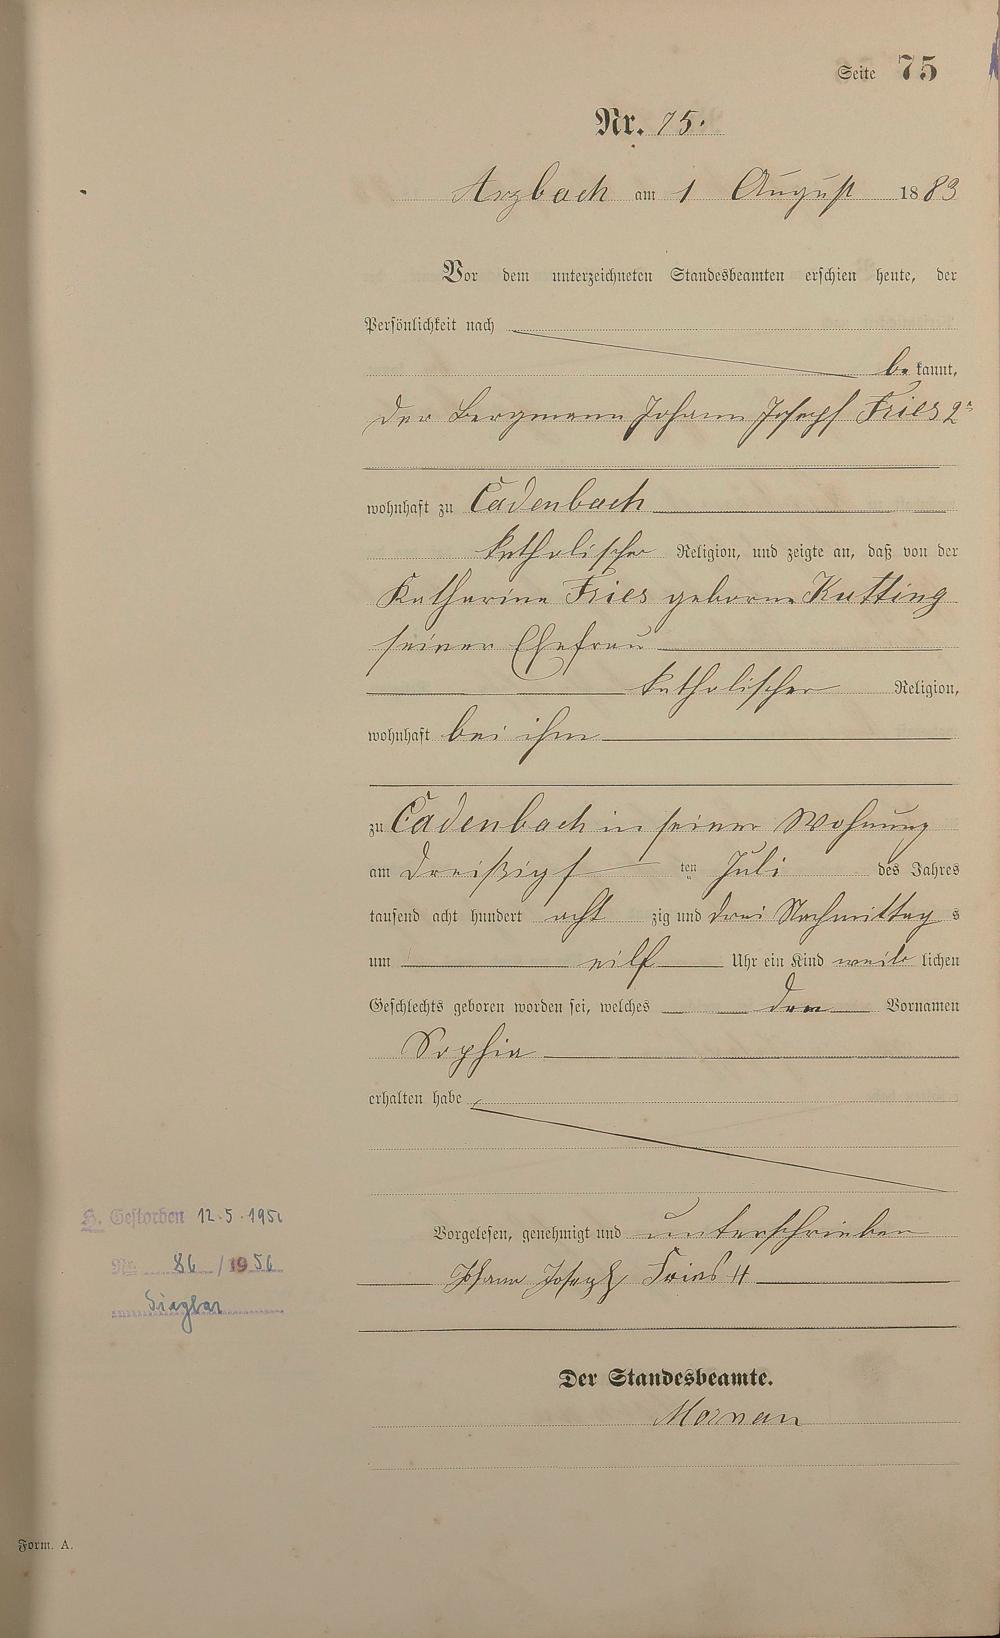 Seite 75
Nr. 75.
Arzbach am 1 August 1883
Vor dem unterzeichneten Standesbeamten erschien heute, der
Persönlichkeit nach
be kannt,
der Bergmann Johann Joseph Fries 2r
wohnhaft zu Cadenbach
katholischer Religion, und zeigte an, daß von der
Katharine Fries geborne Kutting
seiner Ehefrau
katholischer Religion,
wohnhaft bei ihm
zu Cadenbach in seiner Wohnung
am dreißigs ten Juli des Jahres
tausend acht hundert acht zig und drei Nachmittag s
um eilf Uhr ein Kind weib lichen
Geschlechts geboren worden sei, welches den Vornamen
Sophia
erhalten habe
H. Gestorben 12.5.1956
Vorgelesen, genehmigt und unterschrieben
Nr. 86 / 1956
Johann Joseph Fries II
Der Standesbeamte.
Form. A.